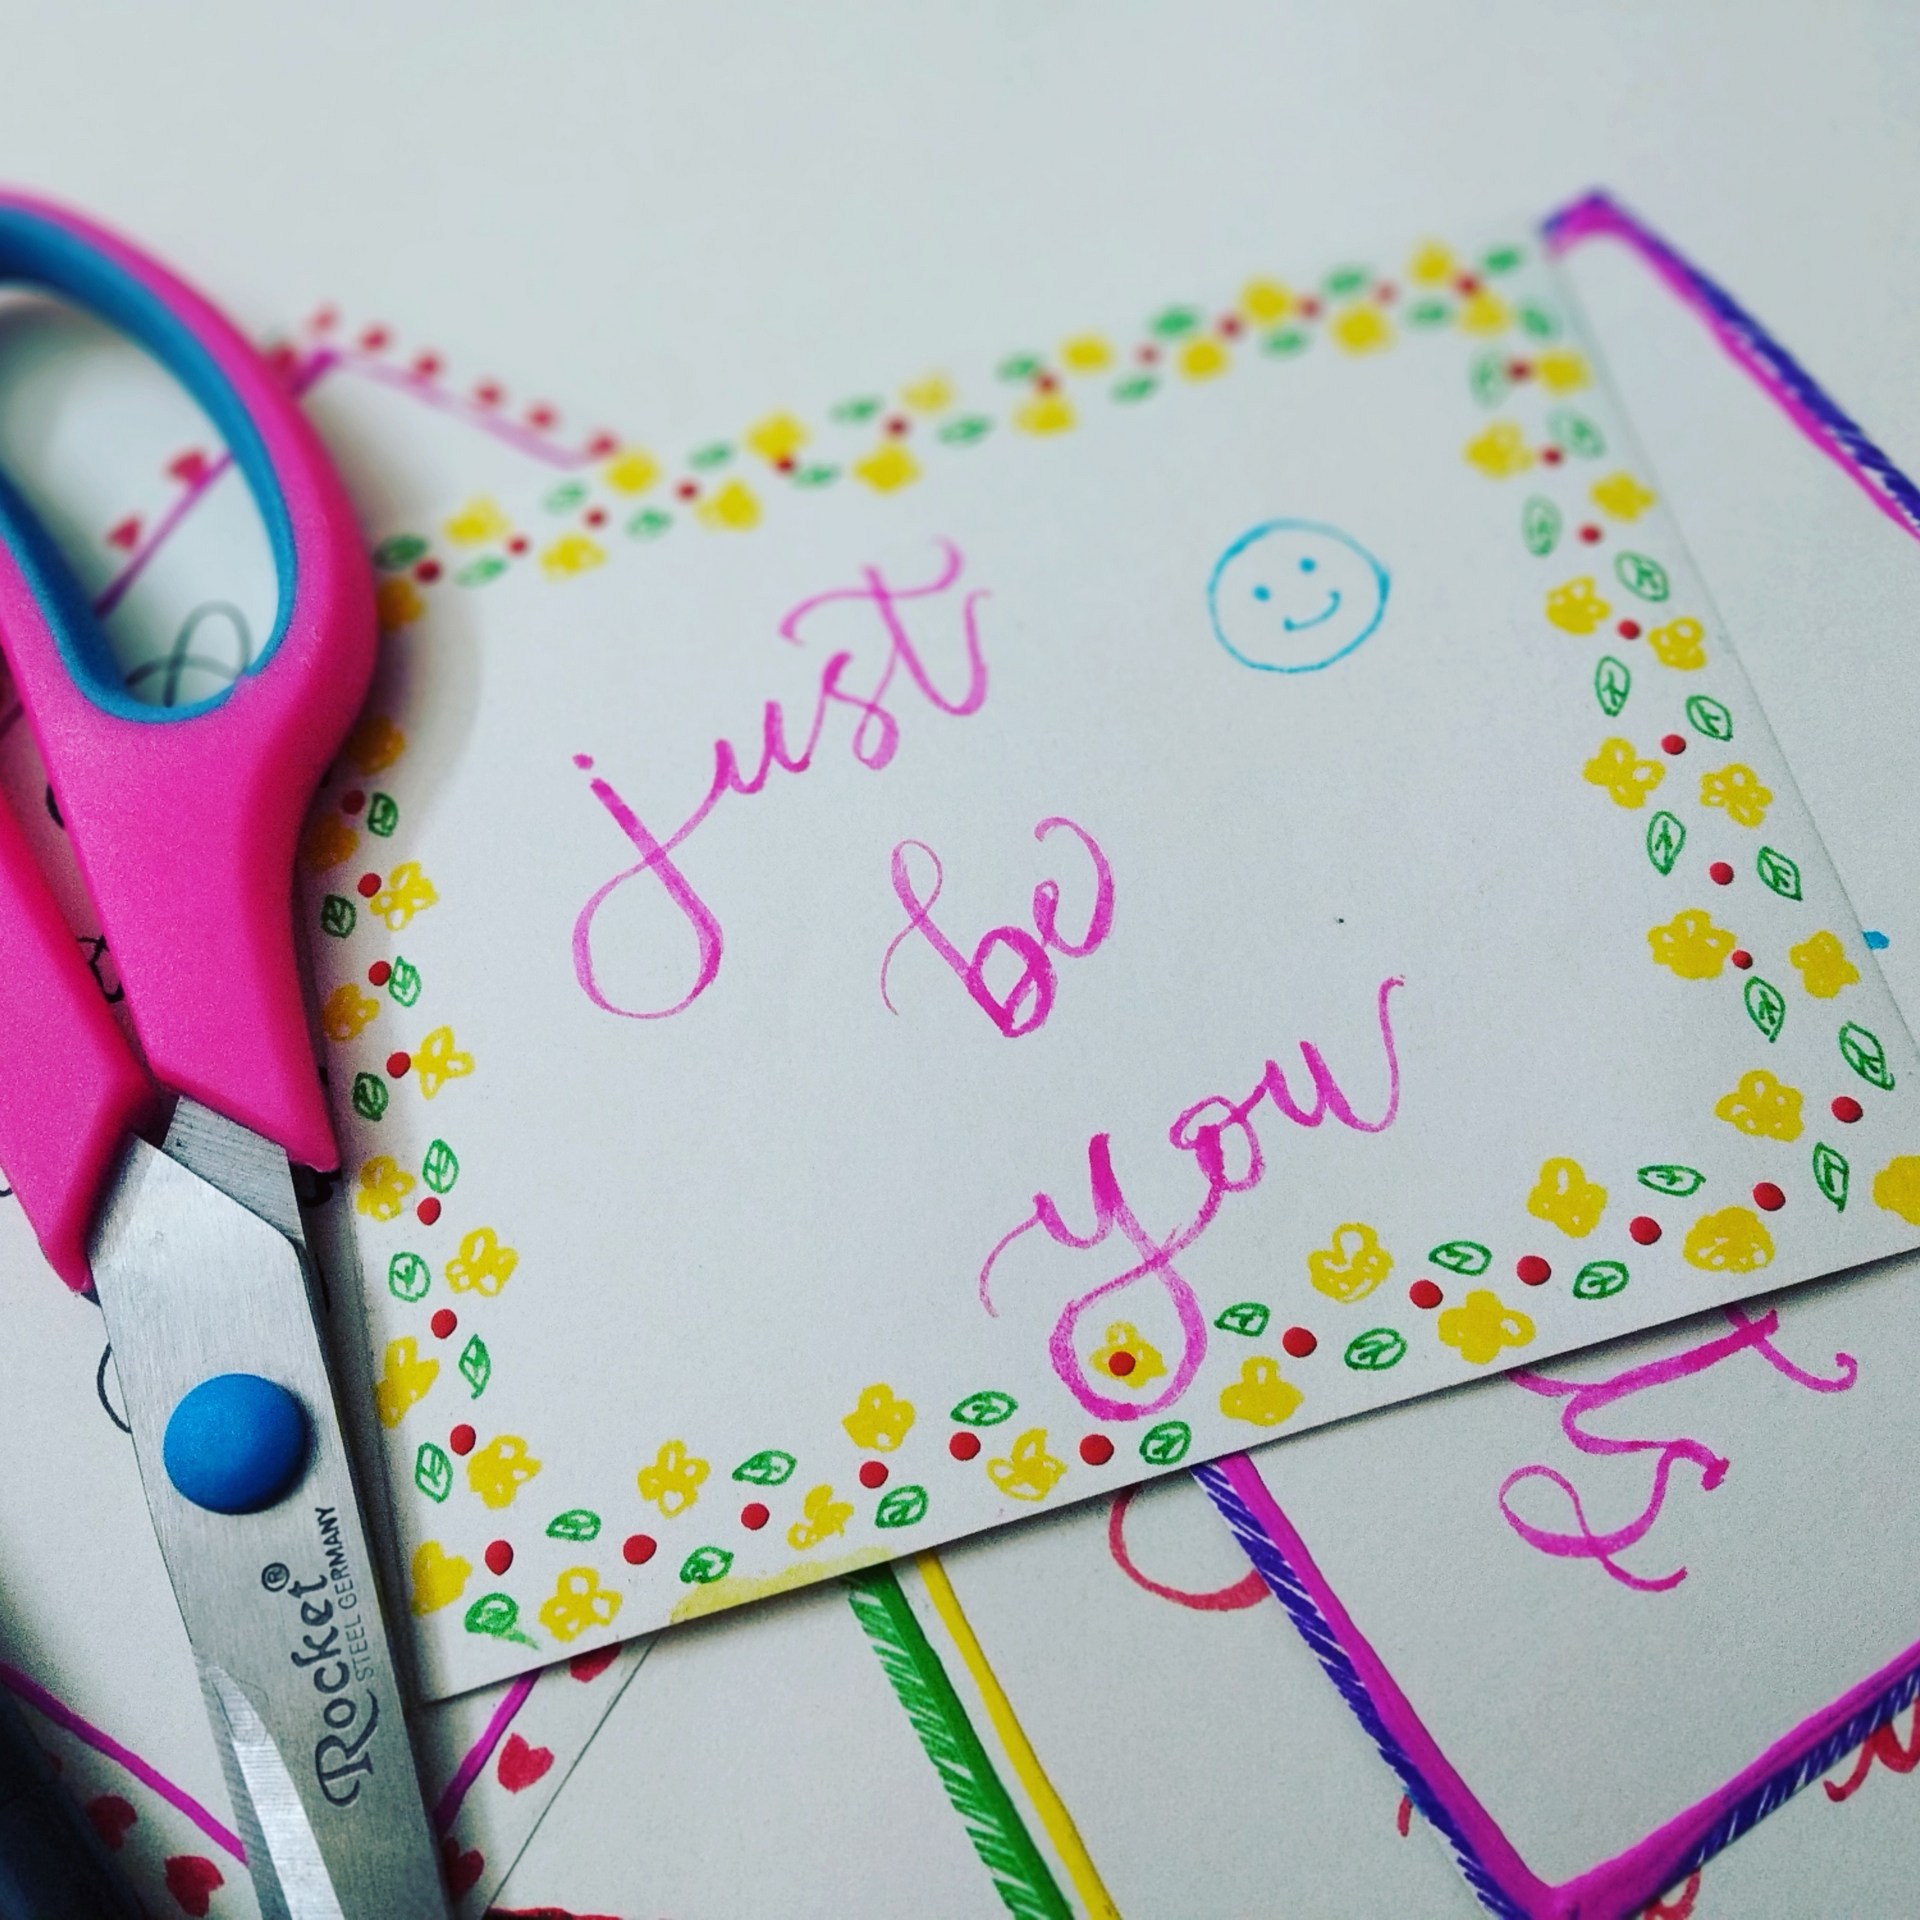 just
be
you
Rocket®
STEEL GERMANY
est